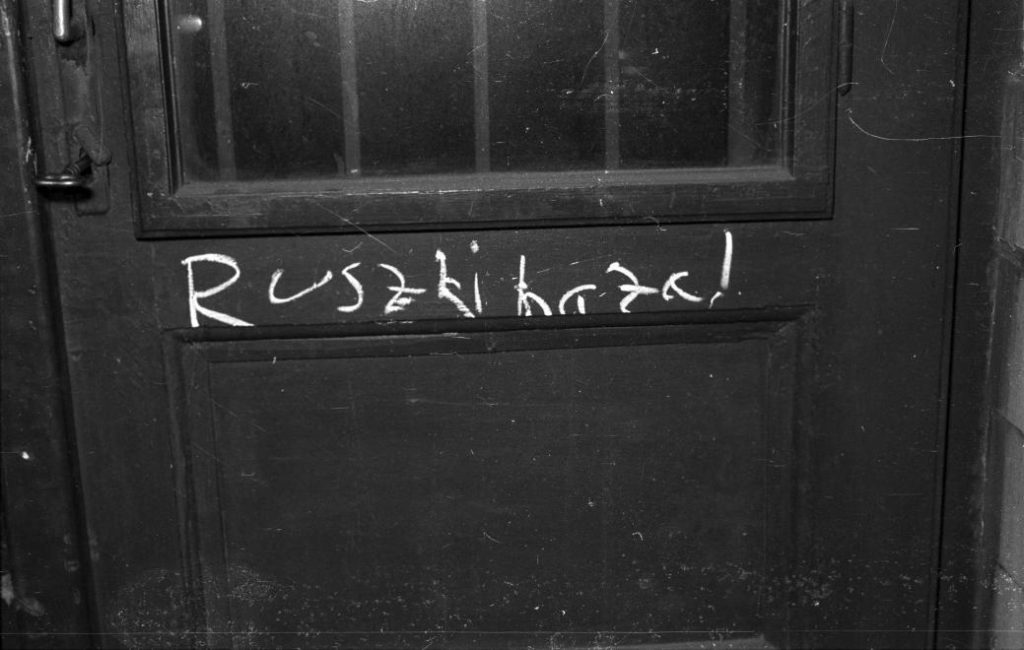 Ruszki haza!